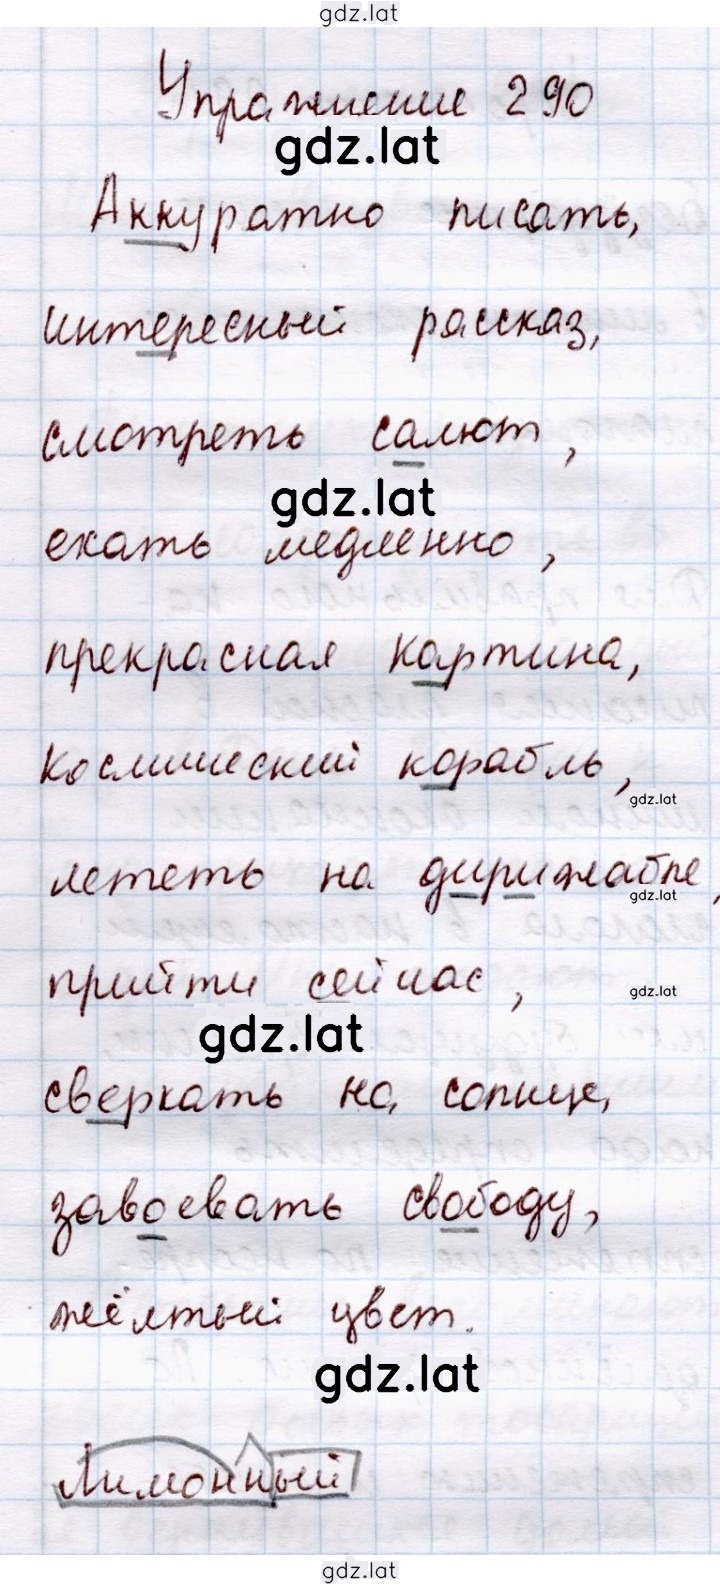 gdz.lat
Упражнение 290
gdz.lat
Аккуратно писать,
интересный рассказ,
смотреть салют,
gdz.lat
ехать медленно,
прекрасная картина,
космический корабль,
gdz.lat
лететь на дирижабле,
gdz.lat
прийти сейчас,
gdz.lat
gdz.lat
сверкать на солнце,
завоевать свободу,
жёлтый цвет.
gdz.lat
Лимонный
gdz.lat